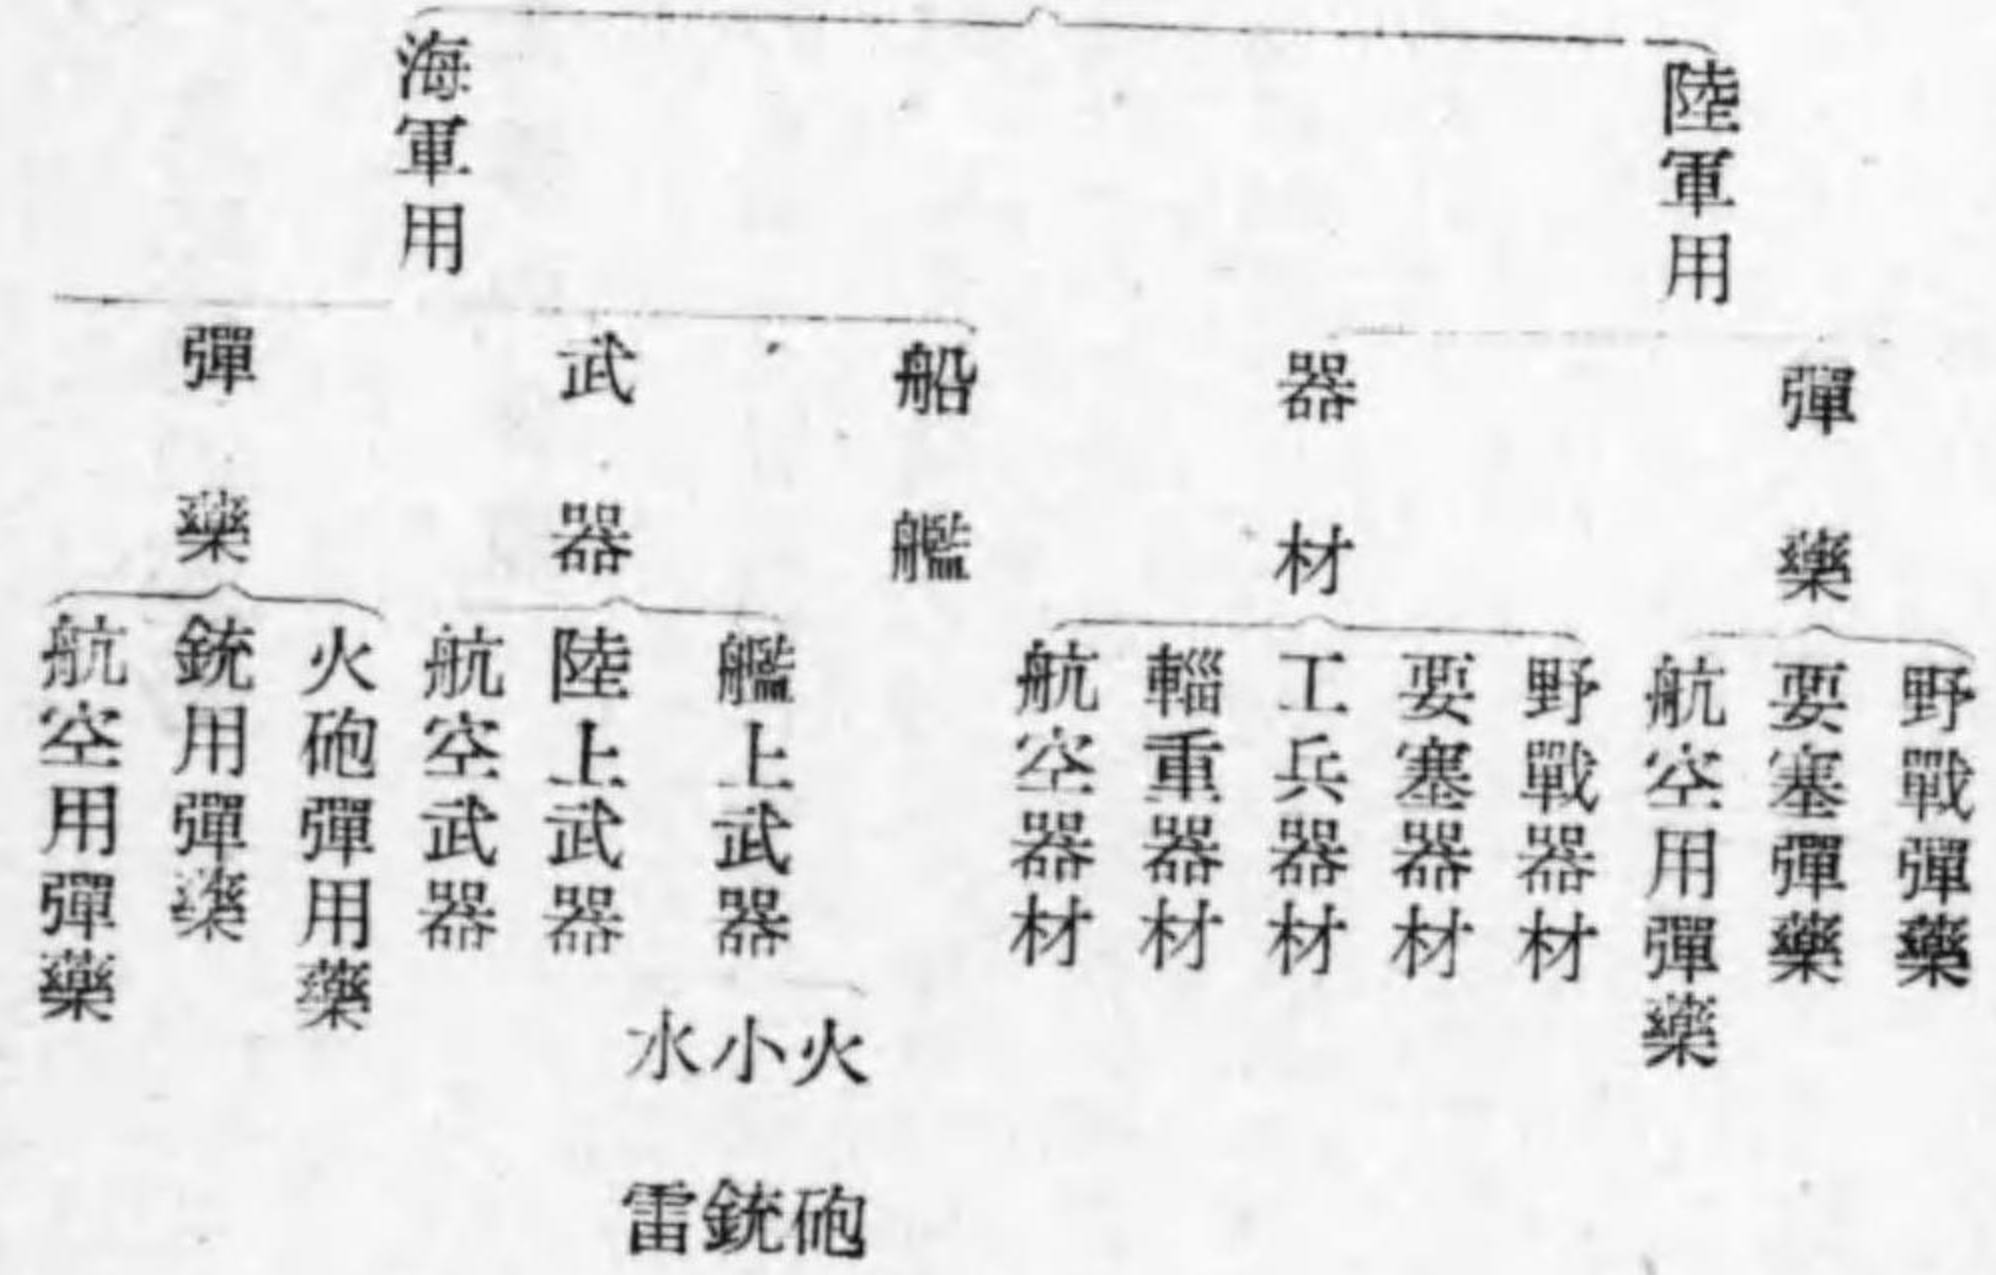 陸軍用
彈藥
野戰彈藥
要塞彈藥
航空用彈藥
器材
野戰器材
要塞器材
工兵器材
輜重器材
航空器材
海軍用
船艦
武器
艦上武器
火砲
小銃
水雷
陸上武器
航空武器
彈藥
火砲彈用藥
銃用彈藥
航空用彈藥